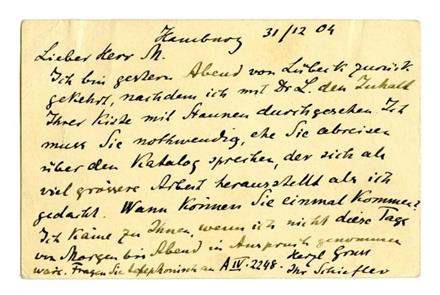 Hamburg 31/12 04
Lieber Herr M.
Ich bin gestern Abend von Lübeck zurück
gekehrt, nachdem ich mit Dr L. den Inhalt
Ihrer Kiste mit Staunen durchgesehen Ich
muss Sie nothwendig, ehe Sie abreisen
über den Katalog sprechen, der sich als
viel grössere Arbeit herausstellt als ich
gedacht. Wann können Sie einmal kommen?
Ich käme zu Ihnen, wenn ich nicht diese Tage
von Morgen bis Abend in Anspruch genommen
wäre. Fragen Sie telephonisch an A IV. 2248. Herzl Gruss
Ihr Schiefler